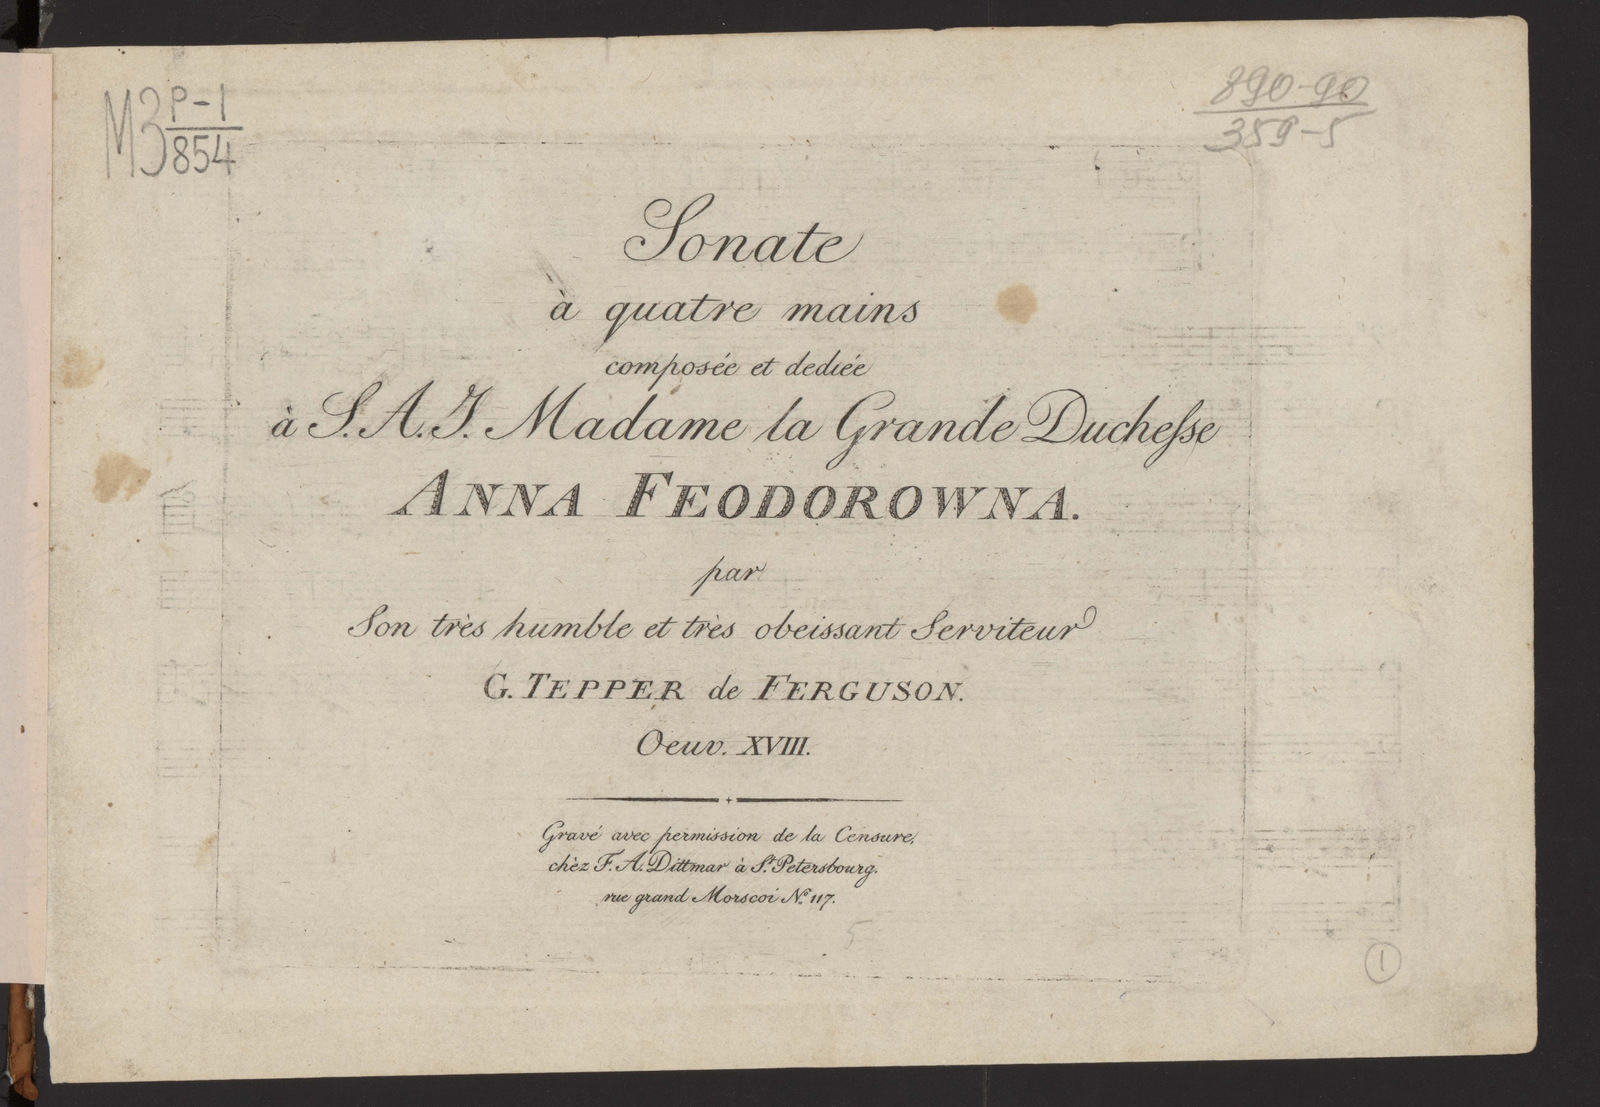 МЗ Р-1
854
890-90
359-5
Sonate
à quatre mains
composée et dediée
à S. A. J. Madame la Grande Duchesse
ANNA FEODOROWNA.
par
Son très humble et très obeissant Serviteur
G. TEPPER de FERGUSON.
Oeuv. XVIII.
Gravé avec permission de la Censure,
chèz F. A. Dittmar à St. Petersbourg.
rue grand Morscoi No. 117.
5
1